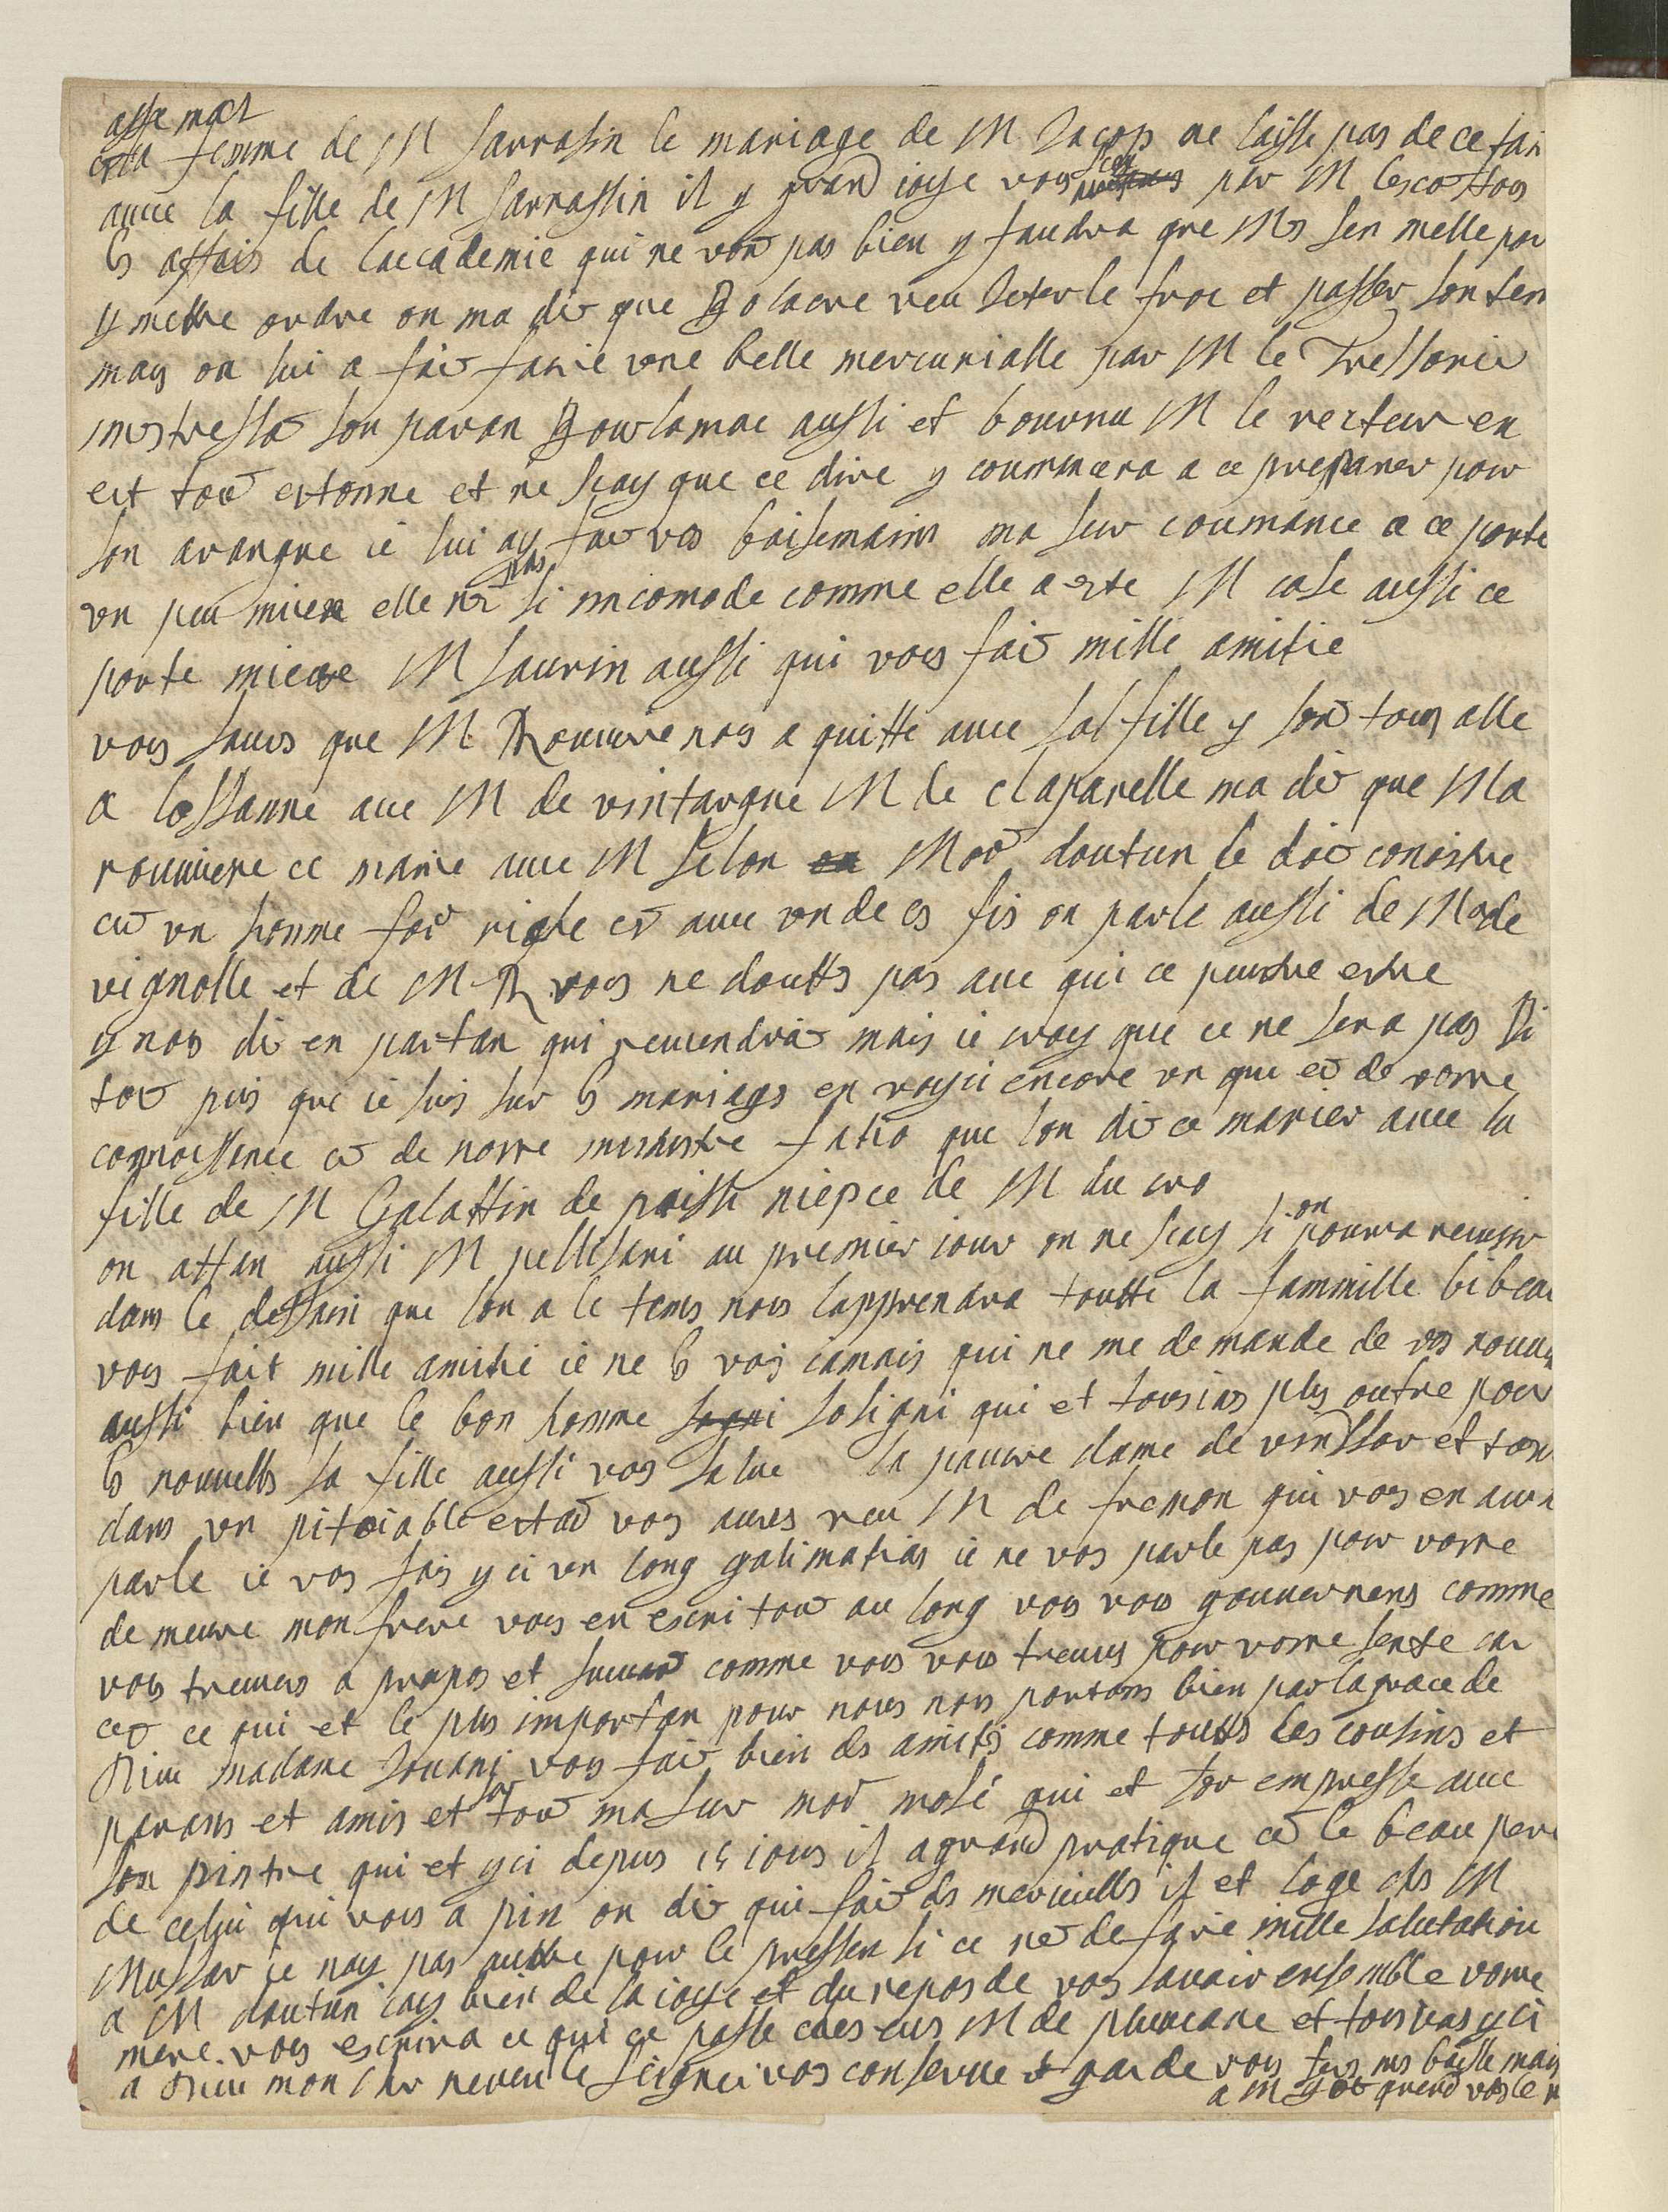 asse mal
la femme de M sarrasin le mariage de M Jacop ne laisse pas de ce fair
auec la fille de M sarrassin il y grand ioye vous scay par M lescot tous
ls affais de laccademie qui ne von pas bien y faudra que Mrs sen melle pour
y mettre ordre on ma dit que Bolacre veu Jeter le froc et passer son tem
mays on lui a fait faire vne belle mercurialle par M le Tressorie
son paran Bourlamac aussi et M le recteur en
est tout estonne et ne scay que ce dire y coummcera a ce preparer pour
son arangue ie lui ay fait vos baisemains ma seur coumance a ce porte
vn peu mieux elle nest pas si incomode comme elle a este M case aussi ce
porte mieux M saurin aussi qui vous fait mille amitie
vous saues que M Rouuire nous a quitte auec sa fille y sont tous alle
a lossanne auec M de vintargue M de claparelle ma dit que Mla
rouuiere ce marie auec M selon Mod dautun le doit conoistre
cest vn homme fort riche et auec vn de es fis on parle aussi de Mde
vignolle et de M R vous ne doutts pas auec qui ce peustre estre
y nous dit en partan qui reuiendrait mais ie croy que ce ne sera pas si
tot puis que ie suis sur ls mariags en voysi encore vn que est de vostre
connoissance cest de nostre ministre fatio que lon dit ce marier auec la
fille de M Galattin de niepce de M du cro
on attan aussi M pellisari au premier iour on ne scay si on pourra reusir
dans le dessain que lon a le tems nous lapprendra toutte la fammille bibeau
vous fait mille amitié ie ne ls voy iamais qui ne me demande de vos nouue
aussi bien que le bon homme soligni qui et tousious plus outre pour
ls nouuells sa fille aussi vous salue la pauure dame de vinssor et tous
dans vn pitoiable estad vous aures veu M de fremon qui vous en aura
parle ie vos fais y ci vn long galimatias ie ne vos parle pas pour vostre
demeure mon frere vous en escri tout au long vous vous gouuernerez comme
vous treuueres a propos et suiuant comme vous vous treuues pour vostre sente car
cest ce qui et le plus importan pour nous nous portons bien par la grace de
Dieu madame Jouani vous fait bien ds amitis comme toutts les cousins et
parans et amis et sur tout ma seur mod mosé qui et for empresse auec
son pintre qui et yci depus 15 iours il a grand pratique cest le beau pere
de celui qui vous a pin on dit qui fait ds merueills il et loge chs M
Mussar ie nay pas autre pour le pressen si ce nest de faire mille salutation
a M dautun iay bien de la ioye et du repos de vos sauoir ensemble vostre
mere vous escrira ce qui ce passe ches eus M de pluuiane et tousious yci
a Dieu mon cher neueu le seigneur vos conserue et garde vous feres mes baisse mains
a M quand vos le